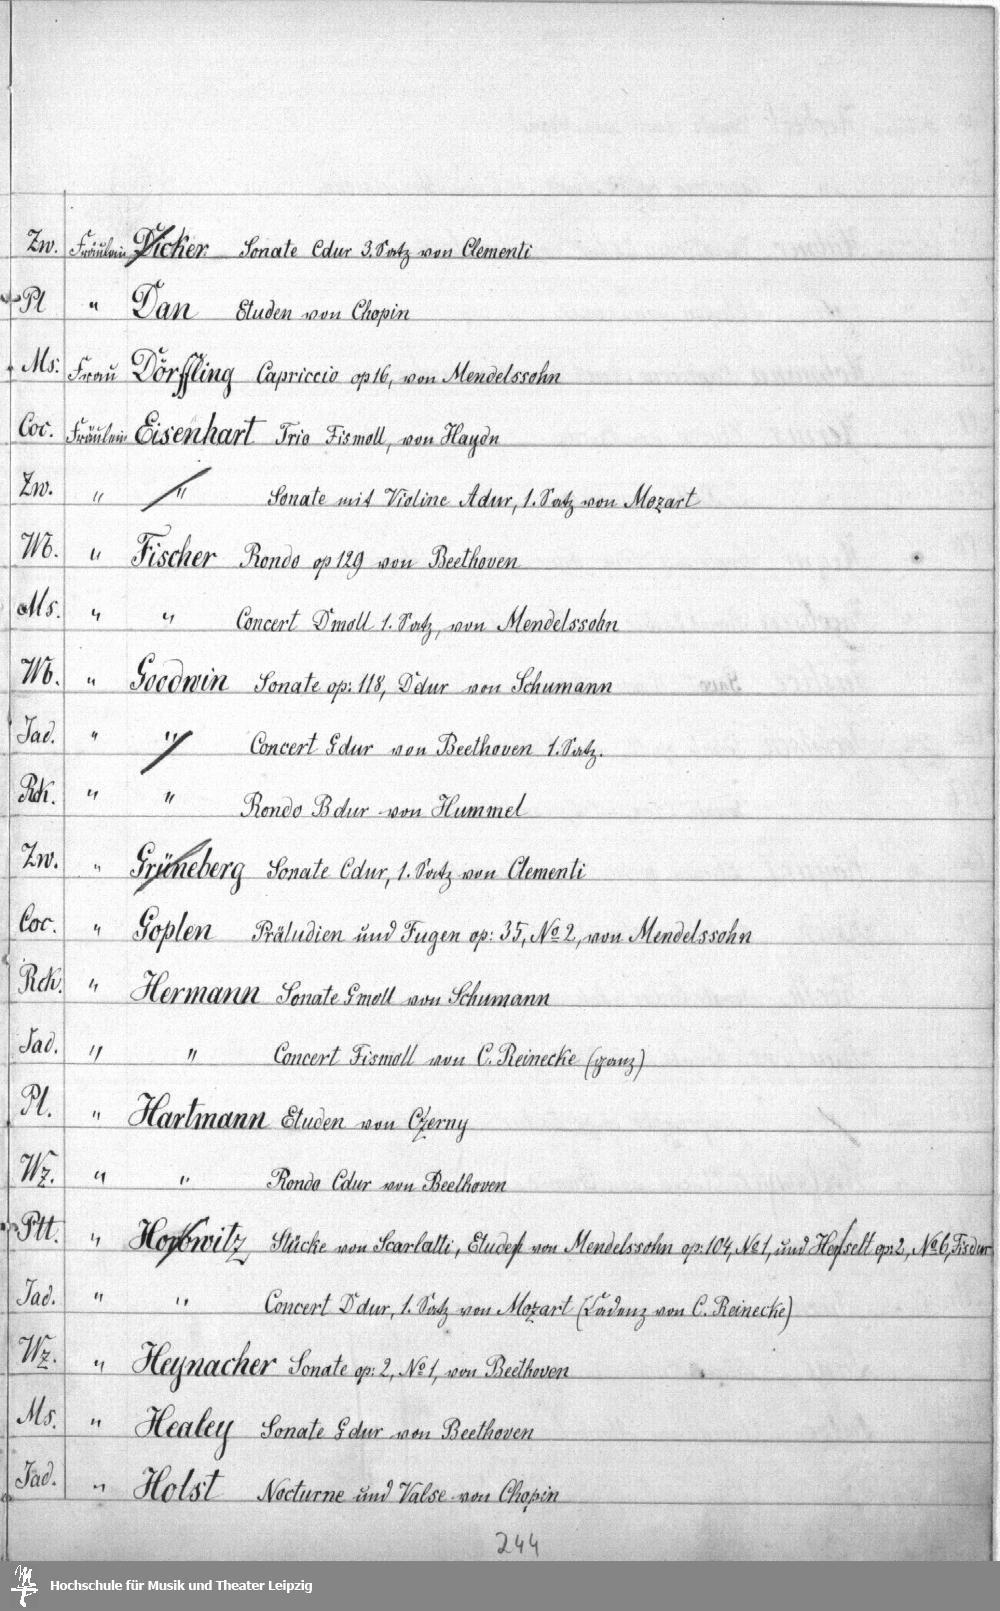 Zw. Fräulein Dicker. Sonate Cdur 3. Satz von Clementi
Pl " Dan Etuden von Chopin
Ms: Frau Dörffling Capriccio op 16, von Mendelssohn
Coc. Fräulein Eisenhart Trio Fismoll, von Haydn
Zw. " " Sonate mit Violine Adur, 1. Satz von Mozart
Wb. " Fischer Rondo op 129 von Beethoven
Ms. " " Concert Dmoll 1. Satz, von Mendelssohn
Wb. " Goodwin Sonate op: 118, Ddur von Schumann
Jad. " " Concert Gdur von Beethoven 1. Satz.
Rck. " " Rondo Bdur von Hummel
Zw. " Grüneberg Sonate Cdur, 1. Satz von Clementi
Coc. " Goplen Präludien und Fugen op: 35, No 2, von Mendelssohn
Rck. " Hermann Sonate Gmoll von Schumann
Jad. " " Concert Fismoll von C. Reinecke (ganz)
Pl. " Hartmann Etuden von Czerny
Wz. " " Rondo Cdur von Beethoven
Ptt. " Horowitz Stücke von Scarlatti, Etuden von Mendelssohn op: 104, No 1, und Henselt op: 2, No 6, Fisdur
Jad. " " Concert Ddur, 1. Satz von Mozart (Cadenz von C. Reinecke)
Wz. " Heynacher Sonate op: 2, No 1, von Beethoven
Ms. " Healey Sonate Gdur von Beethoven
Jad. " Holst Nocturne und Valse von Chopin
244
Hochschule für Musik und Theater Leipzig